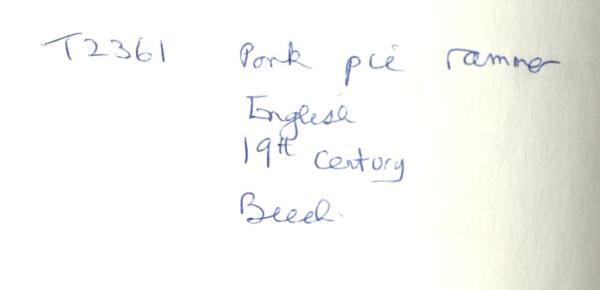 T2361 Pork pie rammer
English
19th Century
Beech.